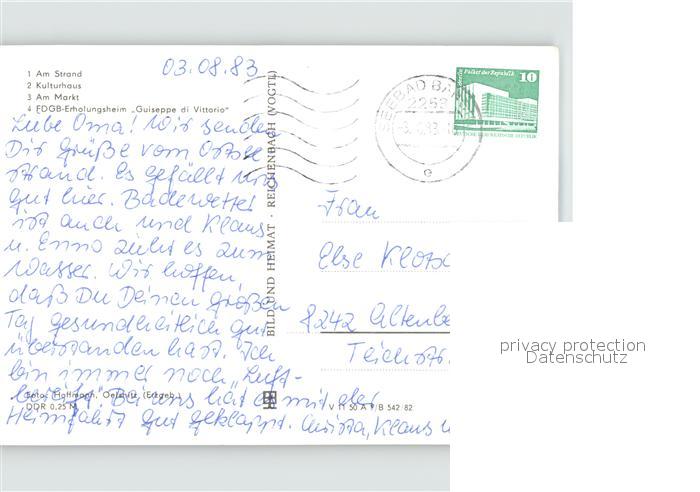 03.08.83
1 Am Strand
2 Kulturhaus
3 Am Markt
4 FDGB-Erholungsheim „Guiseppe di Vittorio"
Liebe Oma! Wir senden
Dir Grüße vom Ostsee
strand. Es gefällt uns
gut hier. Badewetter
ist auch und Klaus
u. Enno zieht es zum
Wasser. Wir hoffen,
daß Du Deinen großen
Tag gesundheitlich gut
überstanden hast. Ich
bin immer noch „Luft-
Foto: Hoffmann, Oelsnitz (Erzgeb.)
bereift". Bei uns hat es mit der
DDR 0,25 M
V 11 50 A 1/B 542/82
Heimfahrt gut geklappt. Christa, Klaus u
BILD UND HEIMAT · REICHENBACH (VOGTL)
SEEBAD BAN
2253
e
Berlin Palast der Republik
10
DEUTSCHE DEMOKRATISCHE REPUBLIK
Frau
Else Klotsc
8242 Altenbe
Teichstr.
privacy protection
Datenschutz